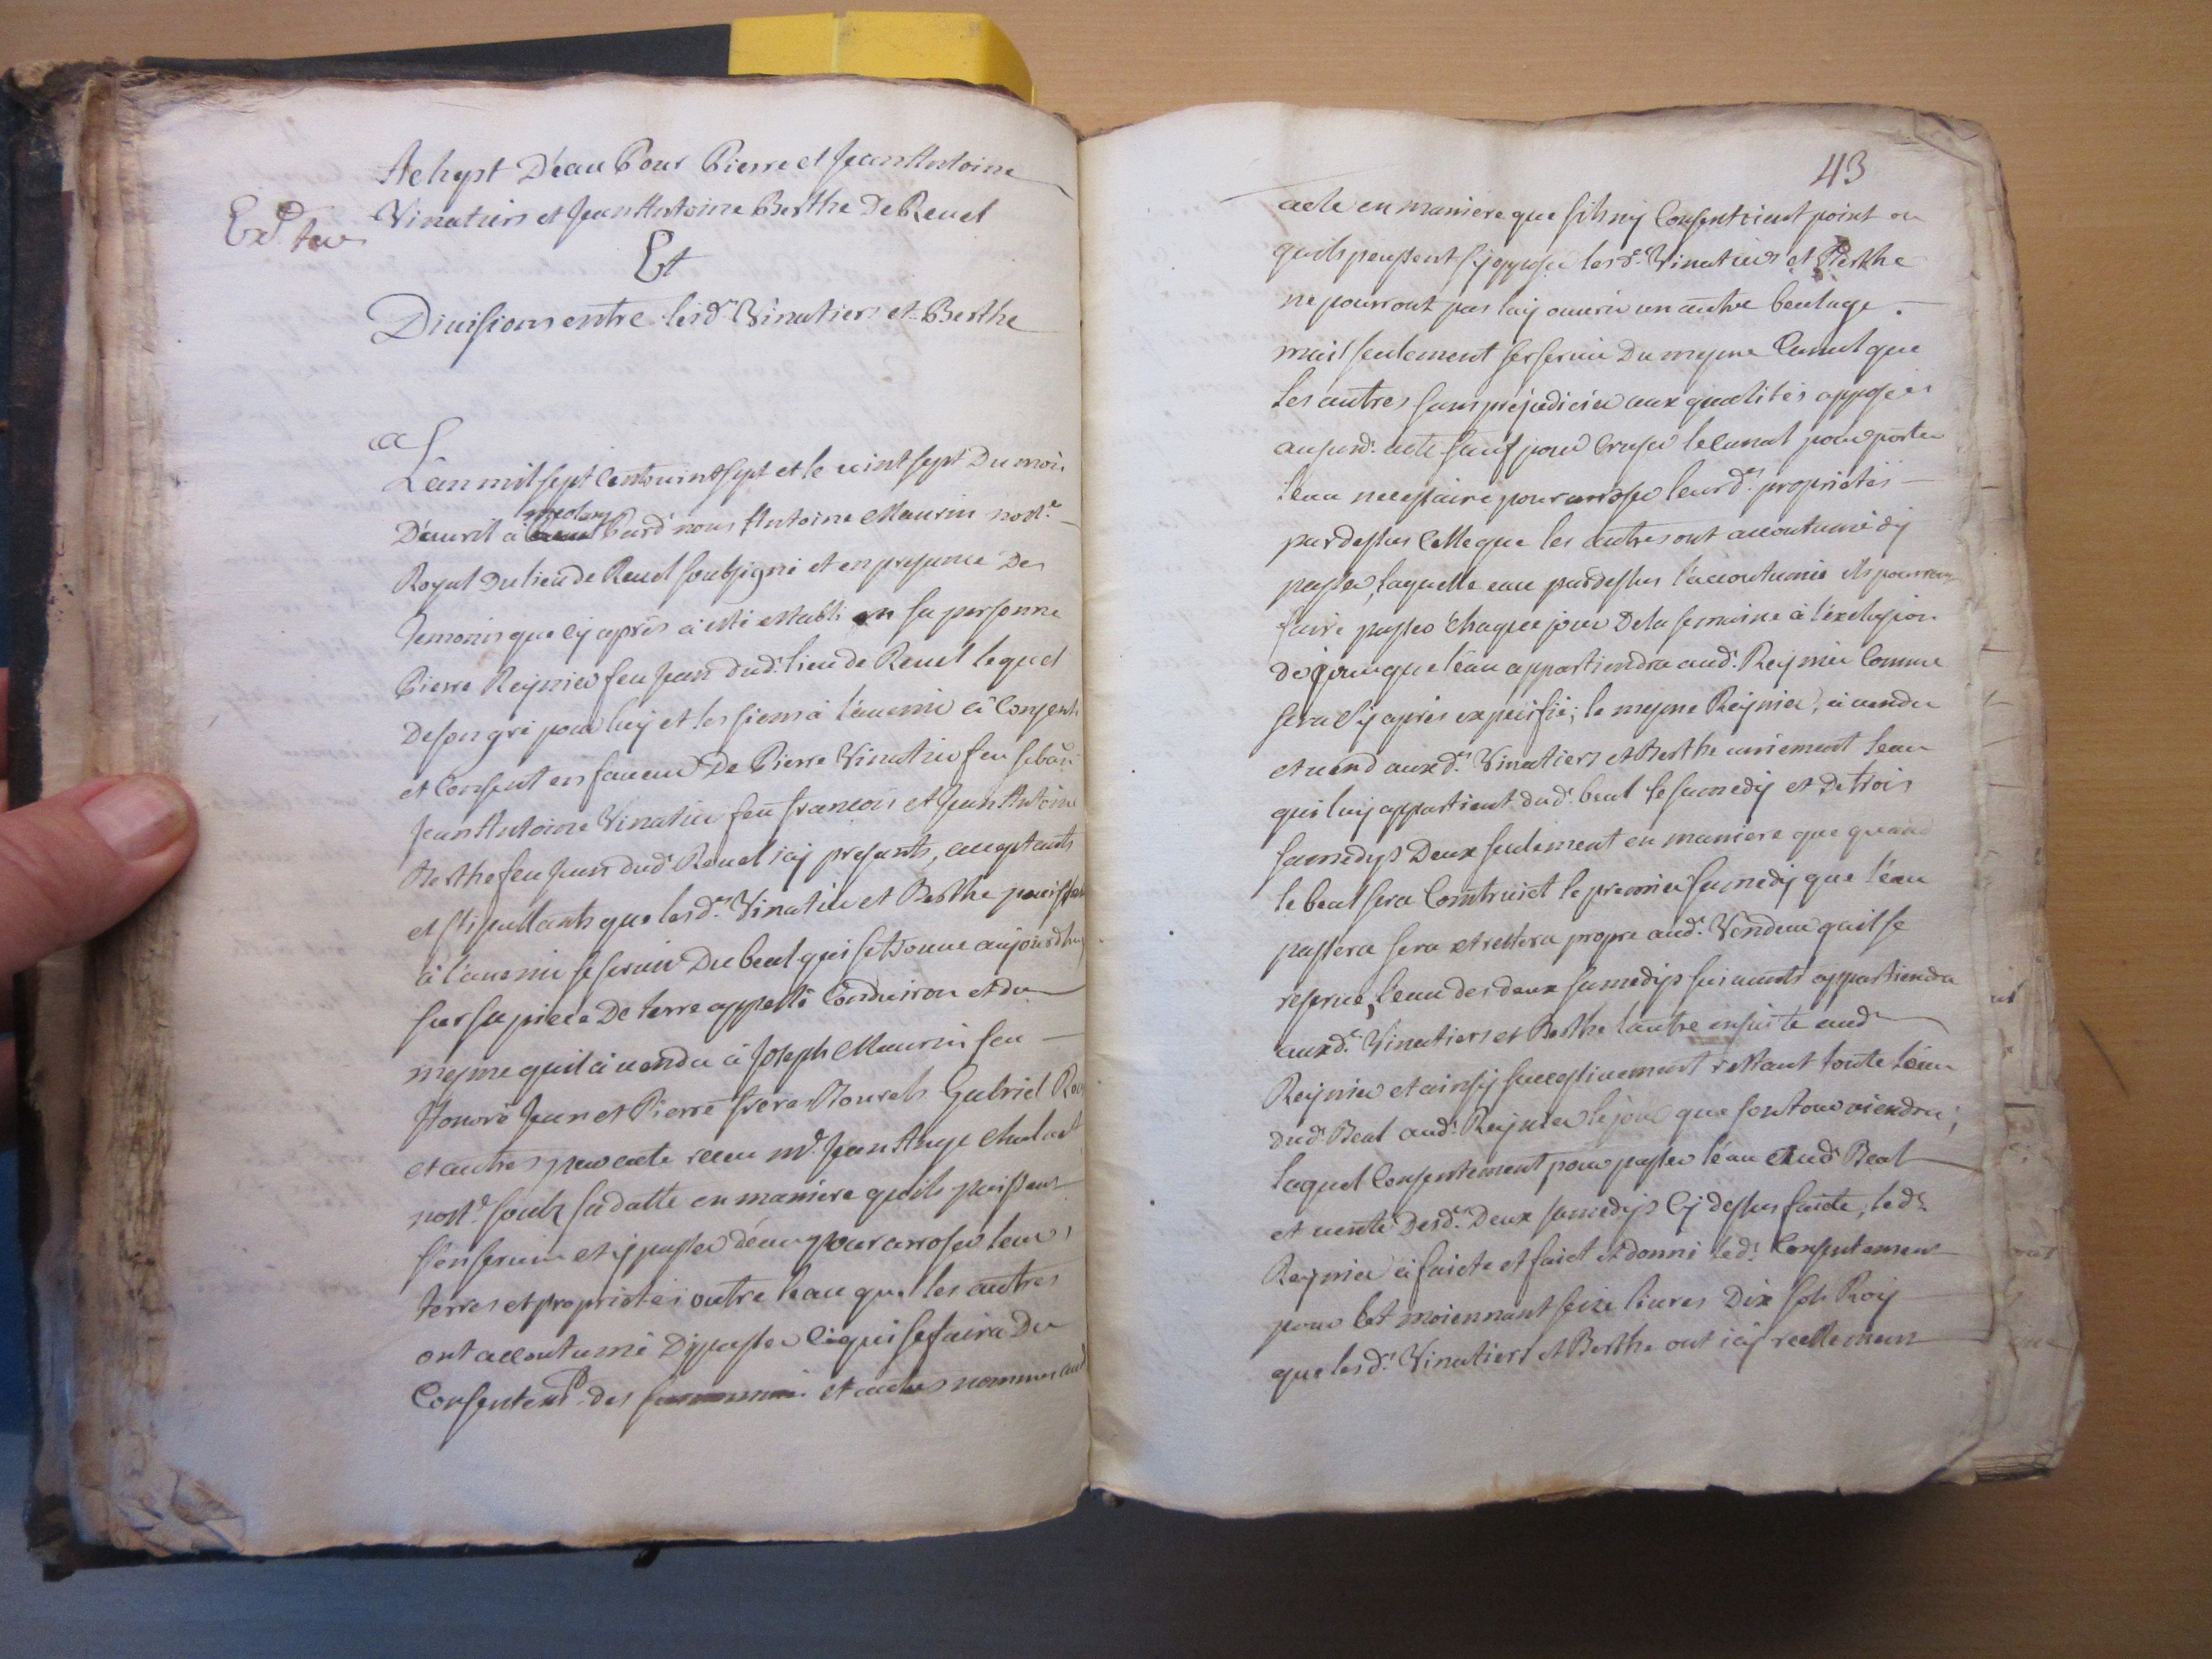 Achept D'eau Pour Pierre et Jean Antoine
Vinatiers et Jean Antoine Berthe De Revel
Exd.
Et
Divisions entre lesd. Vinatiers et Berthe
L'an mil sept Cent vint sept et le vint sept Du mois
D'avril à pard nous Antoine Maurin nott.e
Royal Du lieu de Revel soubsigné et en presance Des
Temoins que cy après à esté establi en sa personne
Pierre Reynier feu Jean dud. lieu de Revel lequel
De son gré pour luy et les siens à l'avenir à Consenti
et Consent en faveur De Pierre Vinatier feu
Jean Antoine Vinatier feu françois et Jean Antoine
Berthe feu Jean dud. Revel icy presants, acceptants
et stipullants que lesd. Vinatier et Berthe puissent
à l'avenir se servir Du beal qui se trouve aujourdhuy
sur sa piece De terre appellé et du
mesme quil à vendu à Joseph Maurin feu
Honoré Jean et Pierre freres Gabriel
et autres par acte receu m.e Jean
nott.e soubz sa datte en maniere quils puissent
s'en servir et y passer d'eau pour arroser leurs
terres et proprietés outre l'eau que les autres
ont accoutumé D'y passer ce qui se faira Du
Consentem.t des et autres nommes aud
43
acte en maniere que sils ny Consentoient point ou
quils peussent s'y opposer lesd. Vinatiers et Berthe
ne pourront pas luy ouvrir un autre bealage.
mais seulement se servir Du mesme Canal que
les autres sans prejudicier aux qualités apposées
aususd. acte sauf pour Cruser le Canal pour porter
l'eau necessaire pour arroser leursd. proprietés
pardessus Celle que les autres ont accoutumé d'y
passer, laquelle eau pardessus l'accoutumée ils pourront
faire passer chaque jour De la semaine à l'exclusion
de jour que l'eau appartiendra aud. Reynier Comme
sera cy après expecifié; le mesme Reynier, à vendu
et vend auxd. Vinatiers et Berthe uniement l'eau
qui luy appartient dud. beal le samedy et De trois
samedys Deux seulement en maniere que quand
le beal sera Construict le premier samedy que l'eau
passera sera et restera propre aud. Vendeur quil se
reserve, l'eau des deux samedys suivants appartiendra
auxd. Vinatiers et Berthe l'autre ensuite aud.
Reynier et ainsy successivement restant toute l'eau
dud. Beal aud. Reynier le jour que son tour viendra;
Lequel Consentement pour passer l'eau aud. Beal
et vente Desd. Deux samedys Cy dessus faicte, led.
Reynier à faicte et faict et donné led. Consentement
pour Et moiennant seize livres Dix sols Roy
que lesd. Vinatiers et Berthe ont icy reellement